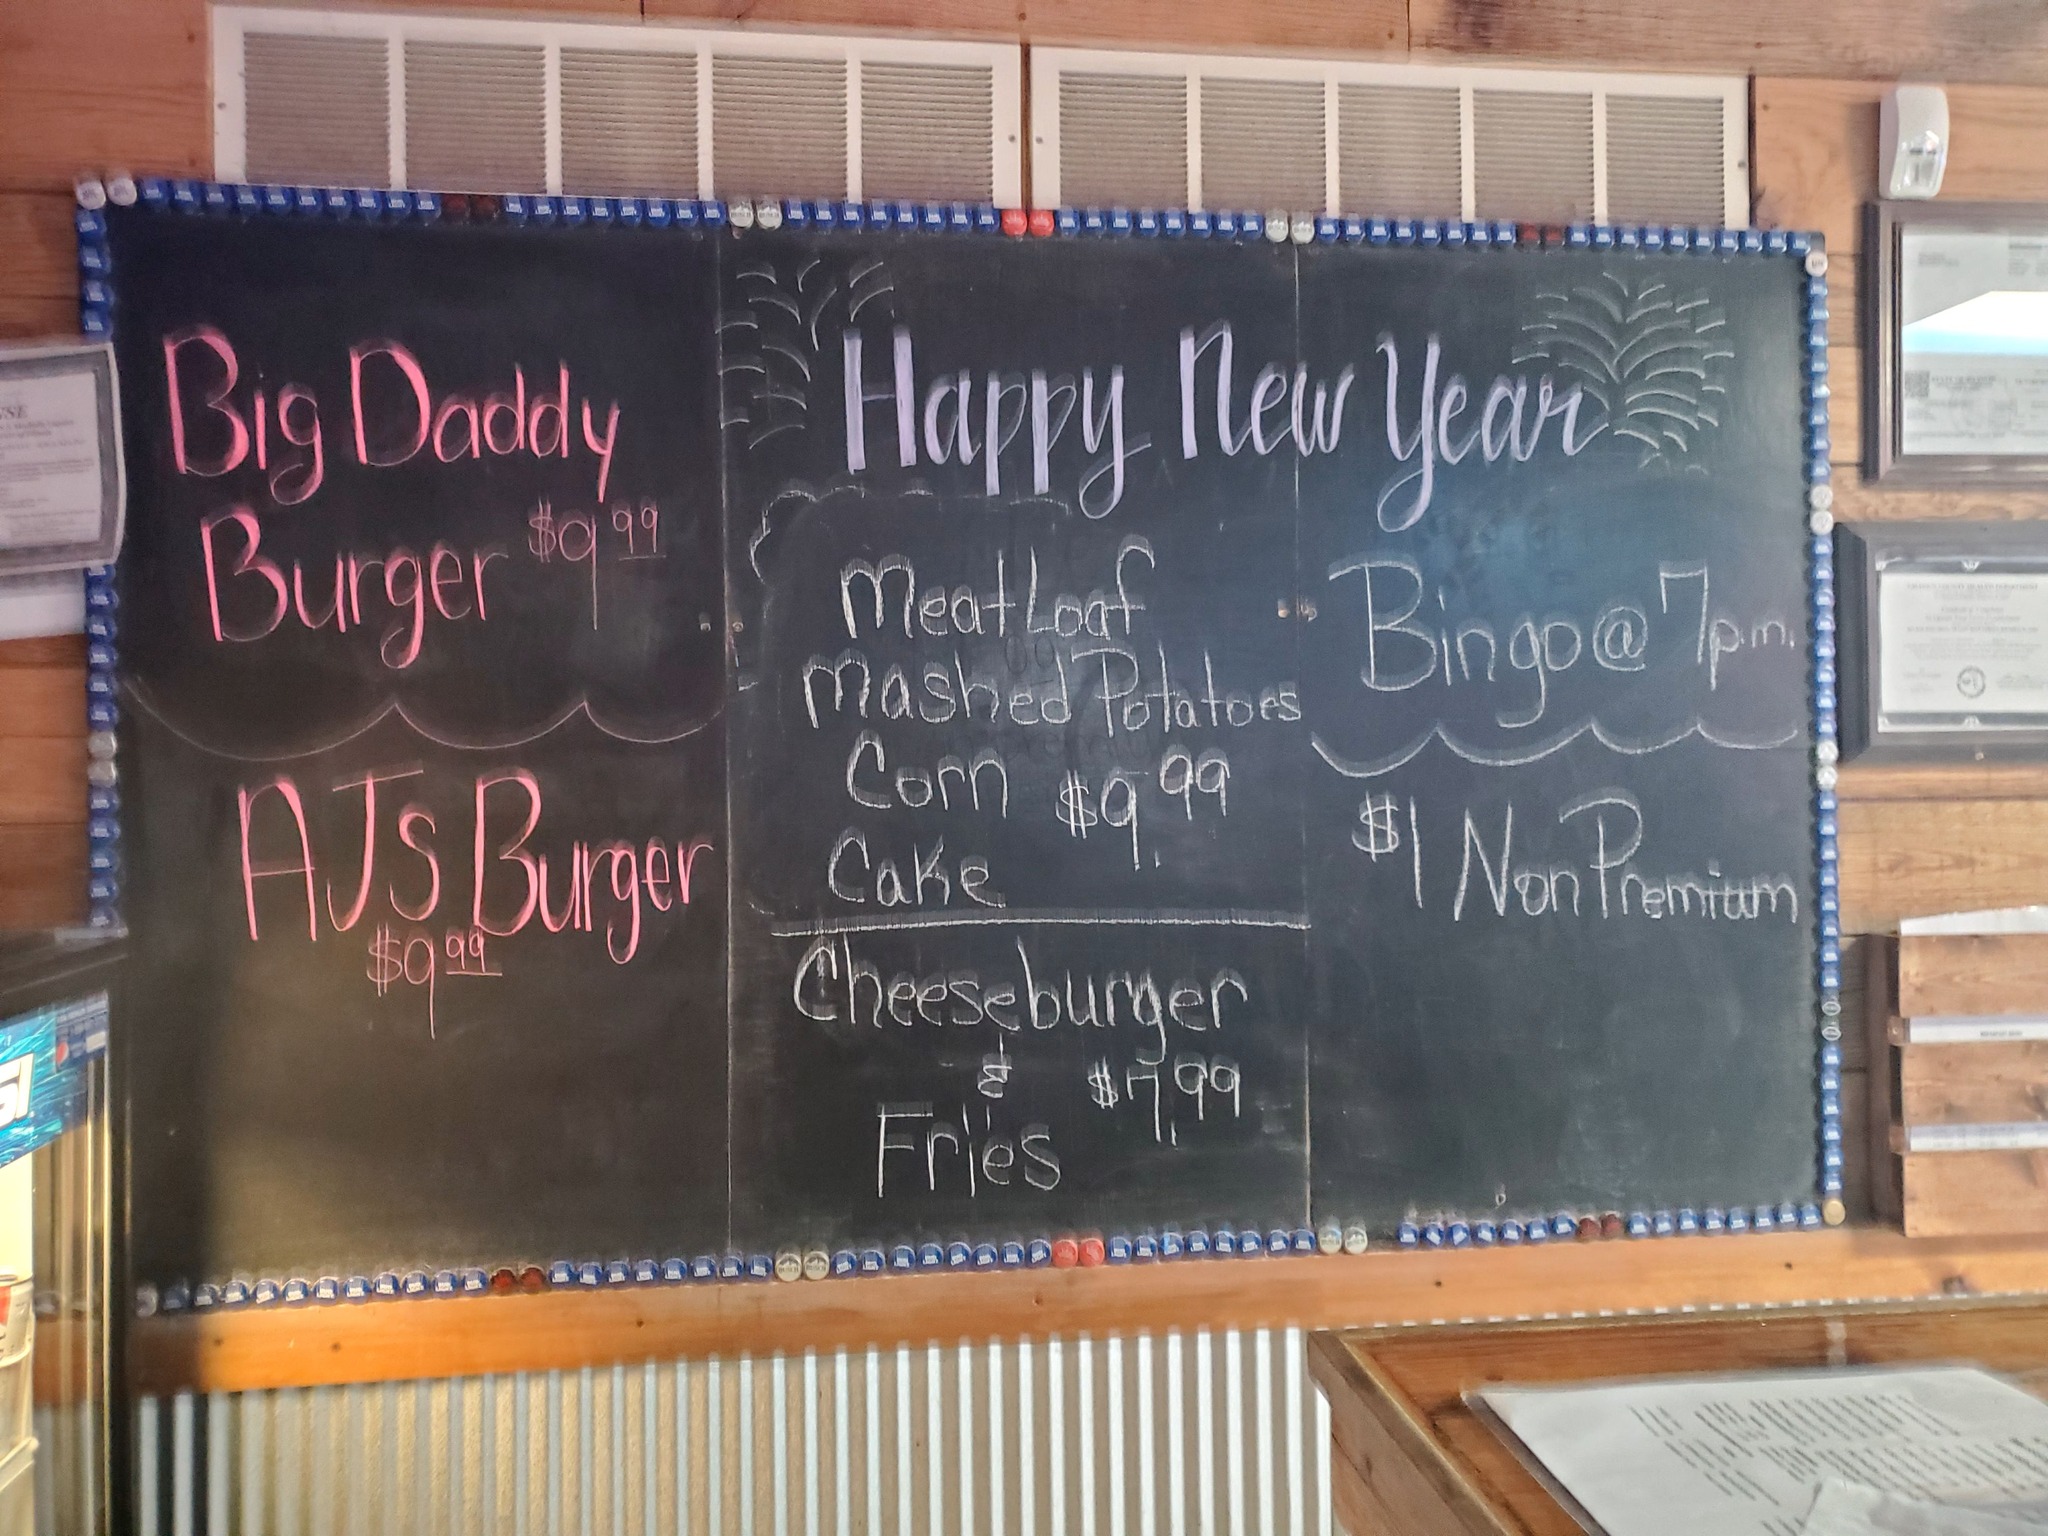 Big Daddy
Burger $9 99
AJs Burger
$9 99
Happy New Year
Meat Loaf
Mashed Potatoes
Corn $9.99
Cake
Cheeseburger
& $7.99
Fries
Bingo @ 7p.m.
$1 Non Premium
BUSCH
BUSCH